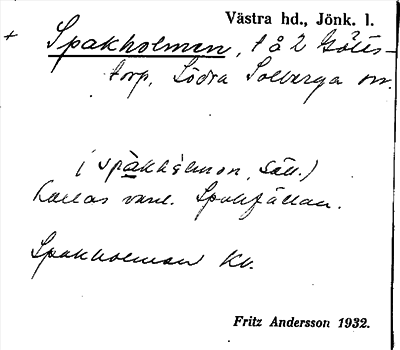 Västra hd., Jönk. l.
+ Spakholmen, t å 2 Götes-
torp, Södra Solberga sn.
( spàkhòlmən, säll.)
Kallas vanl. Spakfällan.
Spakholman Kv.
Fritz Andersson 1932.